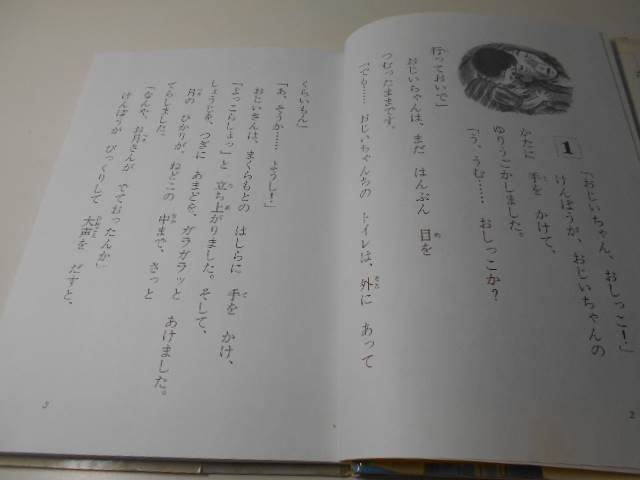 1
「おじいちゃん、おしっこ！」
けんぼうが、おじいちゃんの
かたに 手を かけて、
ゆりうごかしました。
「う、うむ…… おしっこか？
行っておいで」
おじいちゃんは、まだ はんぶん 目を
つむったままです。
「でも…… おじいちゃんちの トイレは、外に あって
2
くらいもん」
「あ、そうか…… ようし！」
おじいさんは、まくらもとの はしらに 手を かけ、
「よっこらしょっ」と 立ち上がりました。そして、
しょうじを、つぎに あまどを、ガラガラッと あけました。
月の ひかりが、ねどこの 中まで、さっと
てらしました。
「なんや、お月さんが でておったんか」
けんぼうが びっくりして 大声を だすと、
3